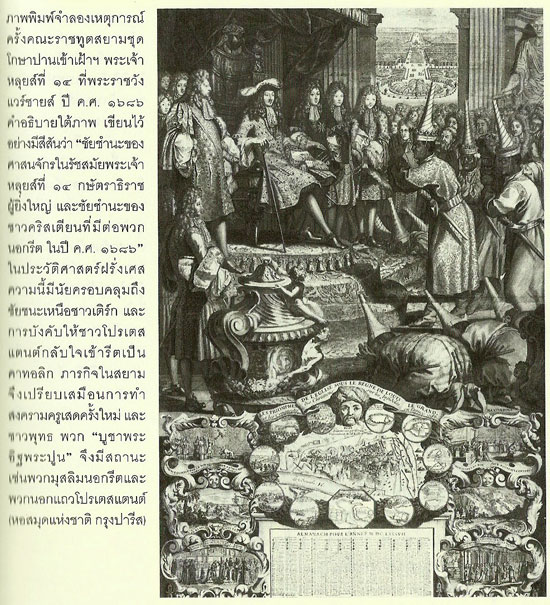 ภาพพิมพ์จำลองเหตุการณ์
ครั้งคณะราชทูตสยามชุด
โกษาปานเข้าเฝ้าฯ พระเจ้า
หลุยส์ที่ ๑๔ ที่พระราชวัง
แวร์ซายส์ ปี ค.ศ. ๑๖๘๖
คำอธิบายใต้ภาพ เขียนไว้
อย่างมีสีสันว่า “ชัยชำนะของ
ศาสนจักรในรัชสมัยพระเจ้า
หลุยส์ที่ ๑๔ กษัตราธิราช
ผู้ยิ่งใหญ่ และชัยชำนะของ
ชาวคริสเตียนที่มีต่อพวก
นอกรีต ในปี ค.ศ. ๑๖๘๖”
ในประวัติศาสตร์ฝรั่งเศส
ความนี้มีนัยครอบคลุมถึง
ชัยชนะเหนือชาวเติร์ก และ
การบังคับให้ชาวโปรเตส
แตนต์กลับใจเข้ารีตเป็น
คาทอลิก ภารกิจในสยาม
จึงเปรียบเสมือนการทำ
สงครามครูเสดครั้งใหม่ และ
ชาวพุทธ พวก “บูชาพระ
อิฐพระปูน” จึงมีสถานะ
เช่นพวกมุสลิมนอกรีตและ
พวกนอกแถวโปรเตสแตนต์
(หอสมุดแห่งชาติ กรุงปารีส)
DE L'EGLISE SOUS LE REGNE DE LOUIS
LE GRAND
ALMANACH POUR L'ANNEE M. DC LXXXVII